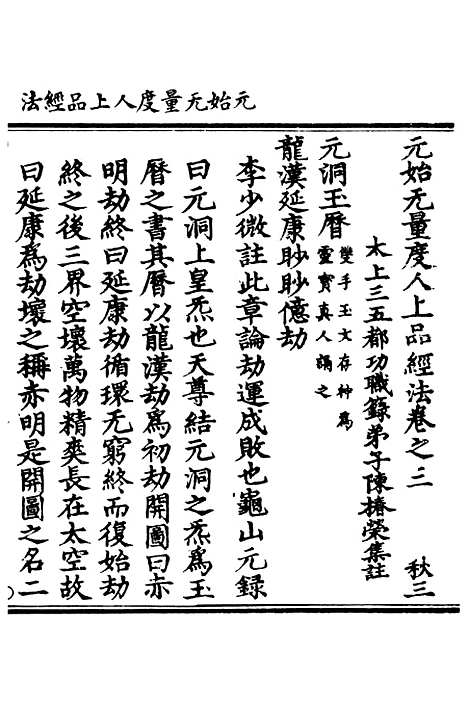 元始无量度人上品經法
元始无量度人上品經法卷之三 秋三
太上三五都功職籙弟子陳椿榮集註
元洞玉曆 雙手玉文存神為
靈寶真人誦之
龍漢延康眇眇億劫
李少微註此章論劫運成敗也龜山元錄
曰元洞上皇炁也天尊結元洞之炁為玉
曆之書其曆以龍漢劫為初劫開圖曰赤
明劫終曰延康劫循環无窮終而復始劫
終之後三界空壞萬物精爽長在太空故
曰延康為劫壞之稱赤明是開圖之名二